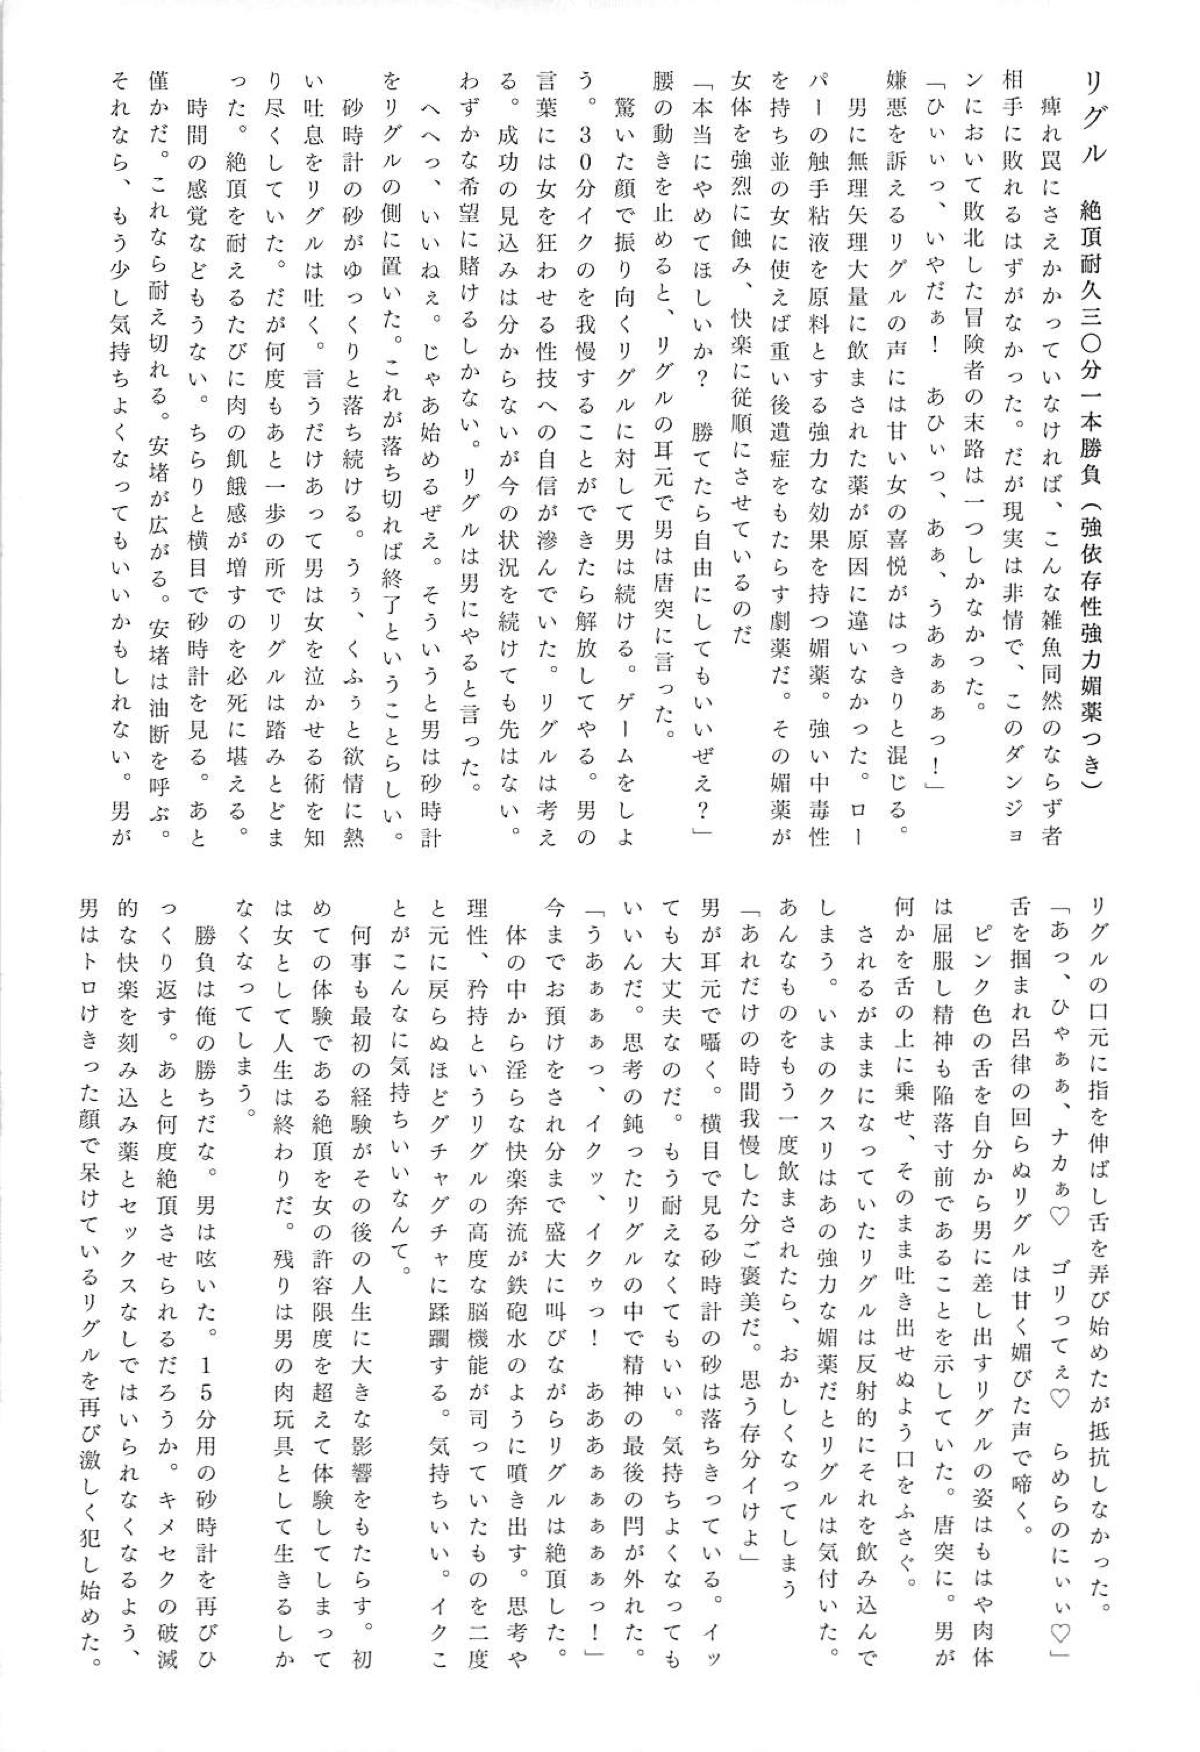 リグル　絶頂耐久三〇分一本勝負（強依存性強力媚薬つき）
痺れ罠にさえかかっていなければ、こんな雑魚同然のならず者
相手に敗れるはずがなかった。だが現実は非情で、このダンジョ
ンにおいて敗北した冒険者の末路は一つしかなかった。
「ひぃぃっ、いやだぁ！　あひぃっ、あぁ、うあぁぁぁっ！」
嫌悪を訴えるリグルの声には甘い女の喜悦がはっきりと混じる。
男に無理矢理大量に飲まされた薬が原因に違いなかった。ロー
パーの触手粘液を原料とする強力な効果を持つ媚薬。強い中毒性
を持ち並の女に使えば重い後遺症をもたらす劇薬だ。その媚薬が
女体を強烈に蝕み、快楽に従順にさせているのだ
「本当にやめてほしいか？　勝てたら自由にしてもいいぜえ？」
腰の動きを止めると、リグルの耳元で男は唐突に言った。
驚いた顔で振り向くリグルに対して男は続ける。ゲームをしよ
う。３０分イクのを我慢することができたら解放してやる。男の
言葉には女を狂わせる性技への自信が滲んでいた。リグルは考え
る。成功の見込みは分からないが今の状況を続けても先はない。
わずかな希望に賭けるしかない。リグルは男にやると言った。
へへっ、いいねぇ。じゃあ始めるぜえ。そういうと男は砂時計
をリグルの側に置いた。これが落ち切れば終了ということらしい。
砂時計の砂がゆっくりと落ち続ける。うぅ、くふぅと欲情に熱
い吐息をリグルは吐く。言うだけあって男は女を泣かせる術を知
り尽くしていた。だが何度もあと一歩の所でリグルは踏みとどま
った。絶頂を耐えるたびに肉の飢餓感が増すのを必死に堪える。
時間の感覚などもうない。ちらりと横目で砂時計を見る。あと
僅かだ。これなら耐え切れる。安堵が広がる。安堵は油断を呼ぶ。
それなら、もう少し気持ちよくなってもいいかもしれない。男が
リグルの口元に指を伸ばし舌を弄び始めたが抵抗しなかった。
「あっ、ひゃぁぁ、ナカぁ♡　ゴリってぇ♡　らめらのにぃぃ♡」
舌を掴まれ呂律の回らぬリグルは甘く媚びた声で啼く。
ピンク色の舌を自分から男に差し出すリグルの姿はもはや肉体
は屈服し精神も陥落寸前であることを示していた。唐突に。男が
何かを舌の上に乗せ、そのまま吐き出せぬよう口をふさぐ。
されるがままになっていたリグルは反射的にそれを飲み込んで
しまう。いまのクスリはあの強力な媚薬だとリグルは気付いた。
あんなものをもう一度飲まされたら、おかしくなってしまう
「あれだけの時間我慢した分ご褒美だ。思う存分イけよ」
男が耳元で囁く。横目で見る砂時計の砂は落ちきっている。イッ
ても大丈夫なのだ。もう耐えなくてもいい。気持ちよくなっても
いいんだ。思考の鈍ったリグルの中で精神の最後の閂が外れた。
「うあぁぁぁっ、イクッ、イクゥっ！　あああぁぁぁぁぁっ！」
今までお預けをされ分まで盛大に叫びながらリグルは絶頂した。
体の中から淫らな快楽奔流が鉄砲水のように噴き出す。思考や
理性、矜持というリグルの高度な脳機能が司っていたものを二度
と元に戻らぬほどグチャグチャに蹂躙する。気持ちいい。イクこ
とがこんなに気持ちいいなんて。
何事も最初の経験がその後の人生に大きな影響をもたらす。初
めての体験である絶頂を女の許容限度を超えて体験してしまって
は女として人生は終わりだ。残りは男の肉玩具として生きるしか
なくなってしまう。
勝負は俺の勝ちだな。男は呟いた。１５分用の砂時計を再びひ
っくり返す。あと何度絶頂させられるだろうか。キメセクの破滅
的な快楽を刻み込み薬とセックスなしではいられなくなるよう、
男はトロけきった顔で呆けているリグルを再び激しく犯し始めた。